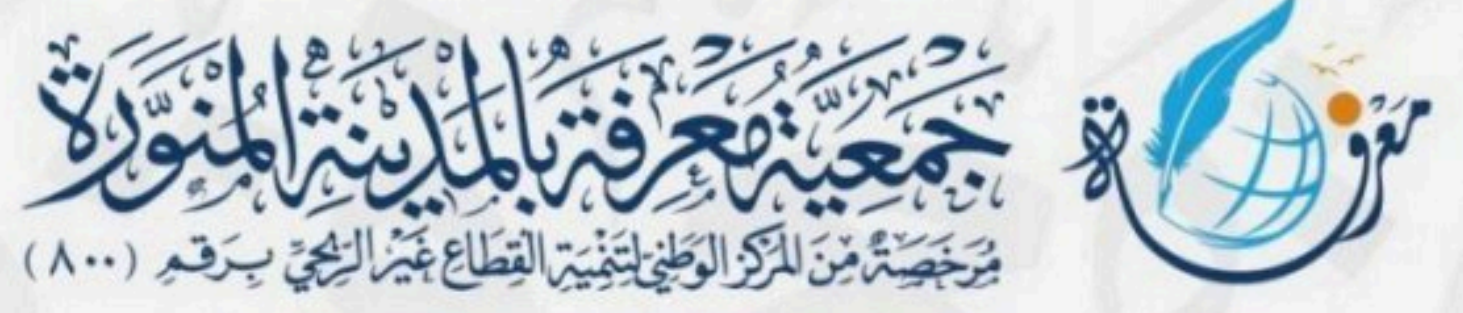 معرفة
جَمْعِيَّة مَعْرِفَة بِالمَدِينَةِ المُنَوَّرَة
مُرَخَّصَةٌ مِنَ المَرْكَزِ الوَطَنِي لِتَنْمِيَةِ القِطَاعِ غَيْرِ الرِّبْحِيِّ بِرَقَم (٨٠٠)